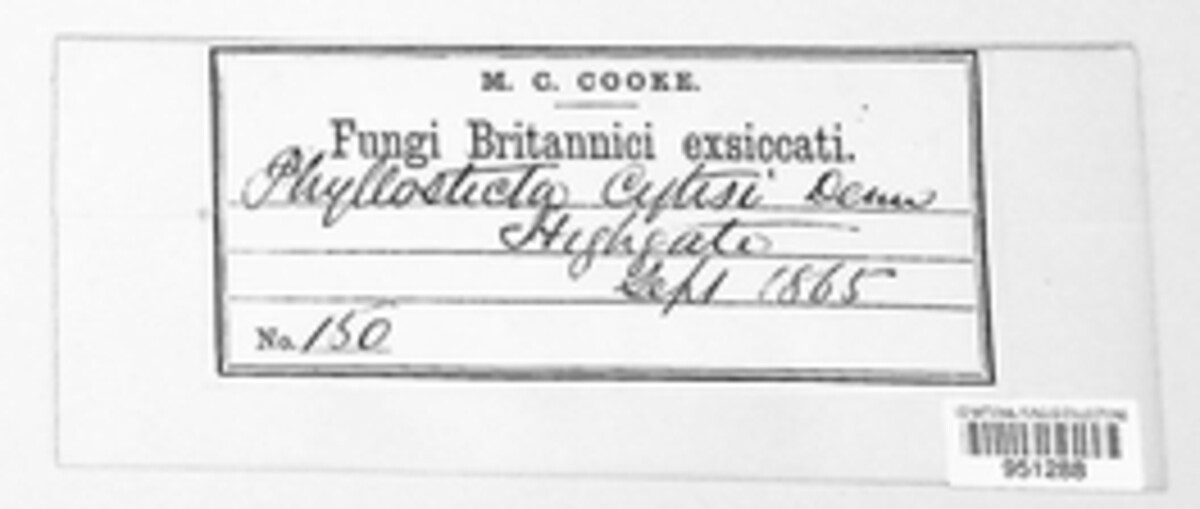 M. C. COOKE.
Fungi Britannici exsiccati.
Phyllosticta Cytisi Desm
Highgate
Sept 1865
No. 150
951288